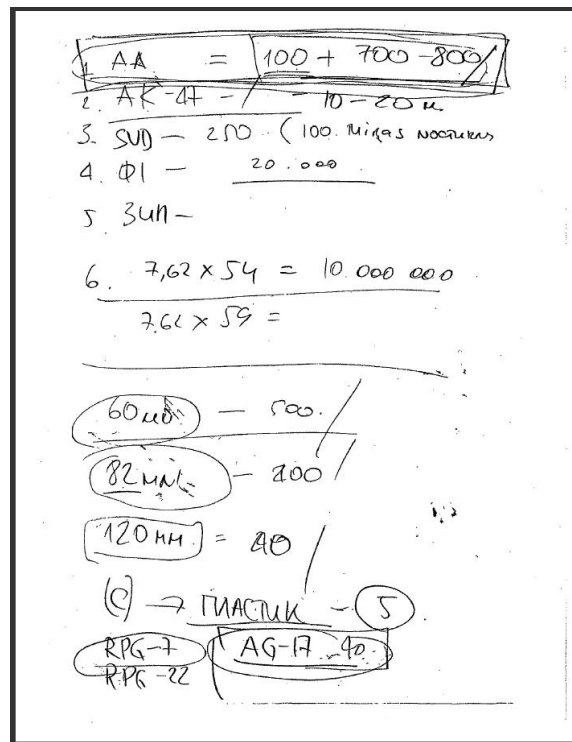 1. AA = 100 + 700 - 800/
2. AK-47 - / - 10-20 м.
3. SVD - 250 (100.
4. Ф1 - 20.000
5 ЗИП -
6. 7,62 x 54 = 10.000 000
7.62 x 59 =
60 мм - 500. /
82 мм - 200 /
120 мм = 40 /
(C) → ПЛАСТИК - 5
RPG-7 AG-17 - 40
RPG-22